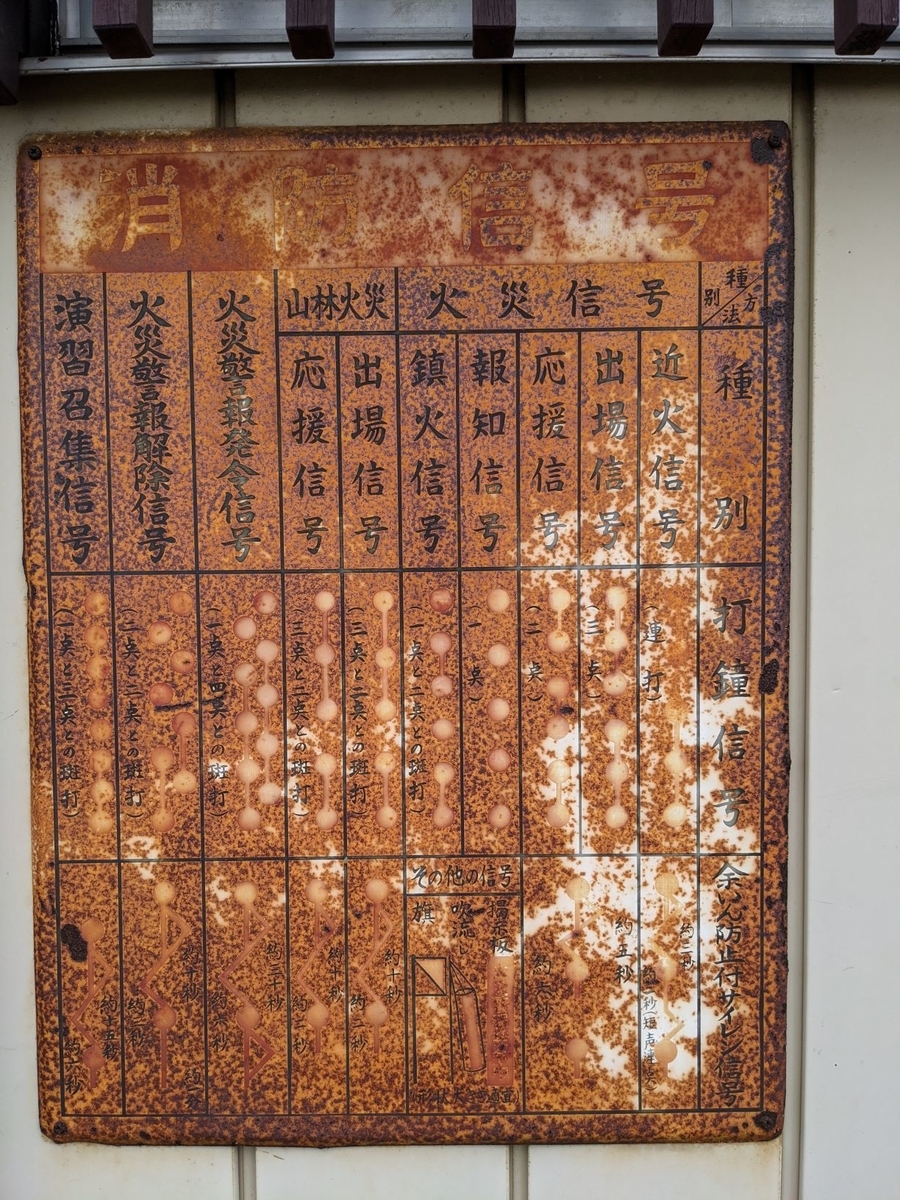 消防信号
種別
方法
火災信号
山林火災
種別
近火信号
出場信号
応援信号
報知信号
鎮火信号
出場信号
応援信号
火災警報発令信号
火災警報解除信号
演習召集信号
打鐘信号
(連打)
(三点)
(二点)
(一点)
(一点と二点との斑打)
(三点と二点との斑打)
(三点と二点との斑打)
(一点と四点との斑打)
(一点と二点との斑打)
(一点と三点との斑打)
余いん防止付サイレン信号
約三秒
秒(短声連点)
約五秒
約六秒
その他の信号
掲示板
吹流し
旗
約十秒
約二秒
約十秒
約 秒
約三十秒
約 秒
約十秒
約三秒
約十五秒
約 秒